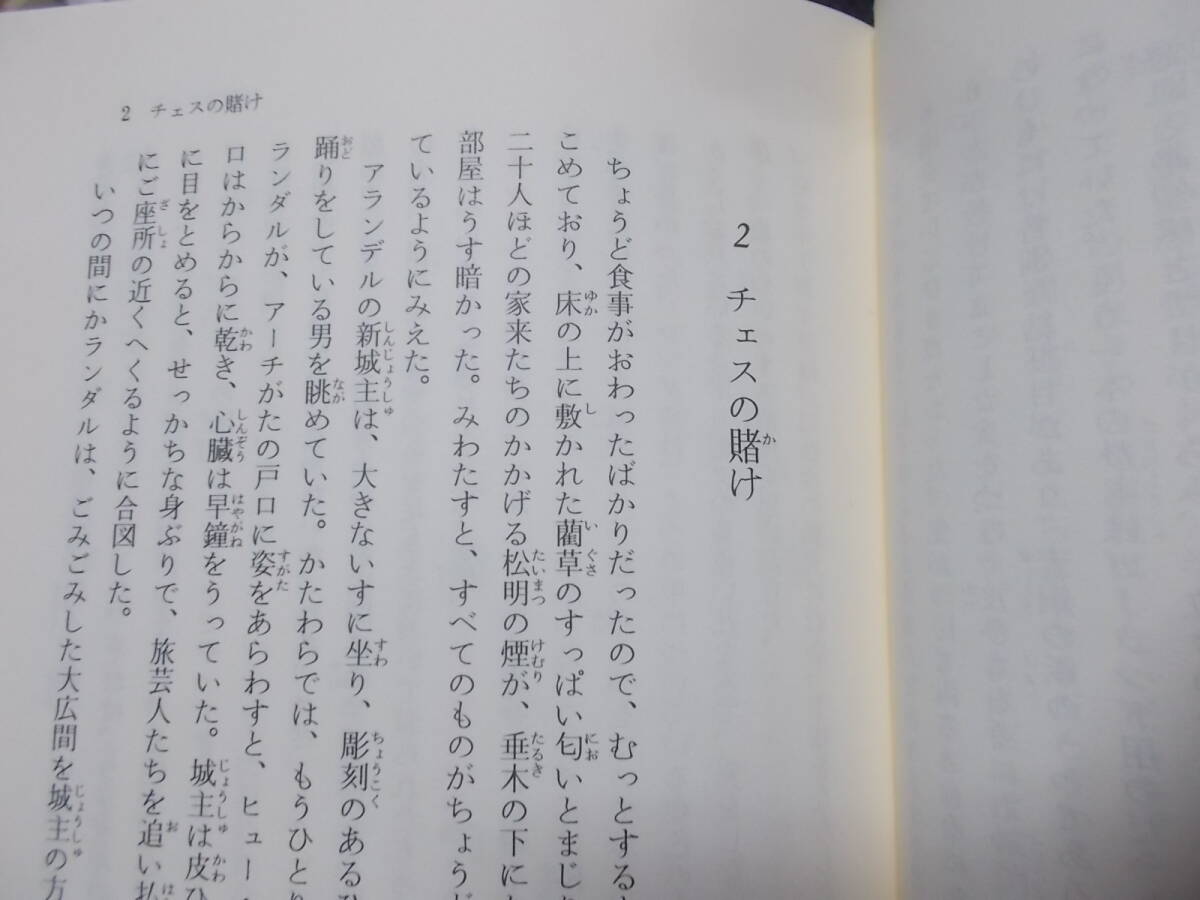 2 チェスの賭け
2 チェスの賭け
ちょうど食事がおわったばかりだったので、むっとする
こめており、床の上に敷かれた藺草のすっぱい匂いとまじり
二十人ほどの家来たちのかかげる松明の煙が、垂木の下に
部屋はうす暗かった。みわたすと、すべてのものがちょうど
ているようにみえた。
アランデルの新城主は、大きないすに坐り、彫刻のあるひ
踊りをしている男を眺めていた。かたわらでは、もうひとり
ランダルが、アーチがたの戸口に姿をあらわすと、ヒュー
口はからからに乾き、心臓は早鐘をうっていた。城主は皮ひ
に目をとめると、せっかちな身ぶりで、旅芸人たちを追い払
にご座所の近くへくるように合図した。
いつの間にかランダルは、ごみごみした大広間を城主の方